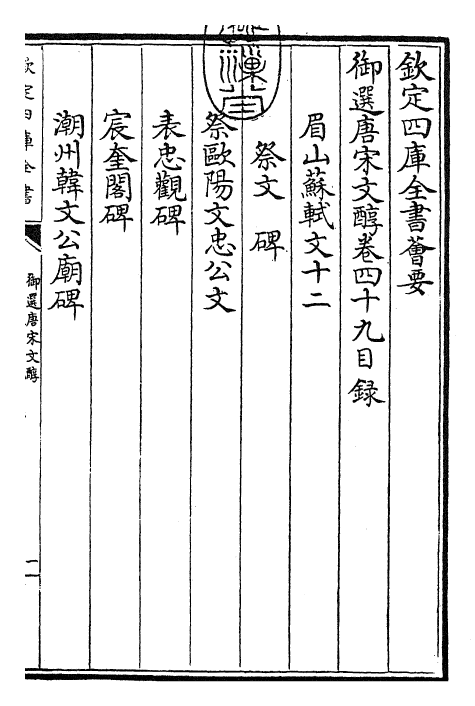 欽定四庫全書薈要
御選唐宋文醇卷四十九目錄
眉山蘇軾文十二
祭文 碑
祭歐陽文忠公文
表忠觀碑
宸奎閣碑
潮州韓文公廟碑
欽定四庫全書
御選唐宋文醇